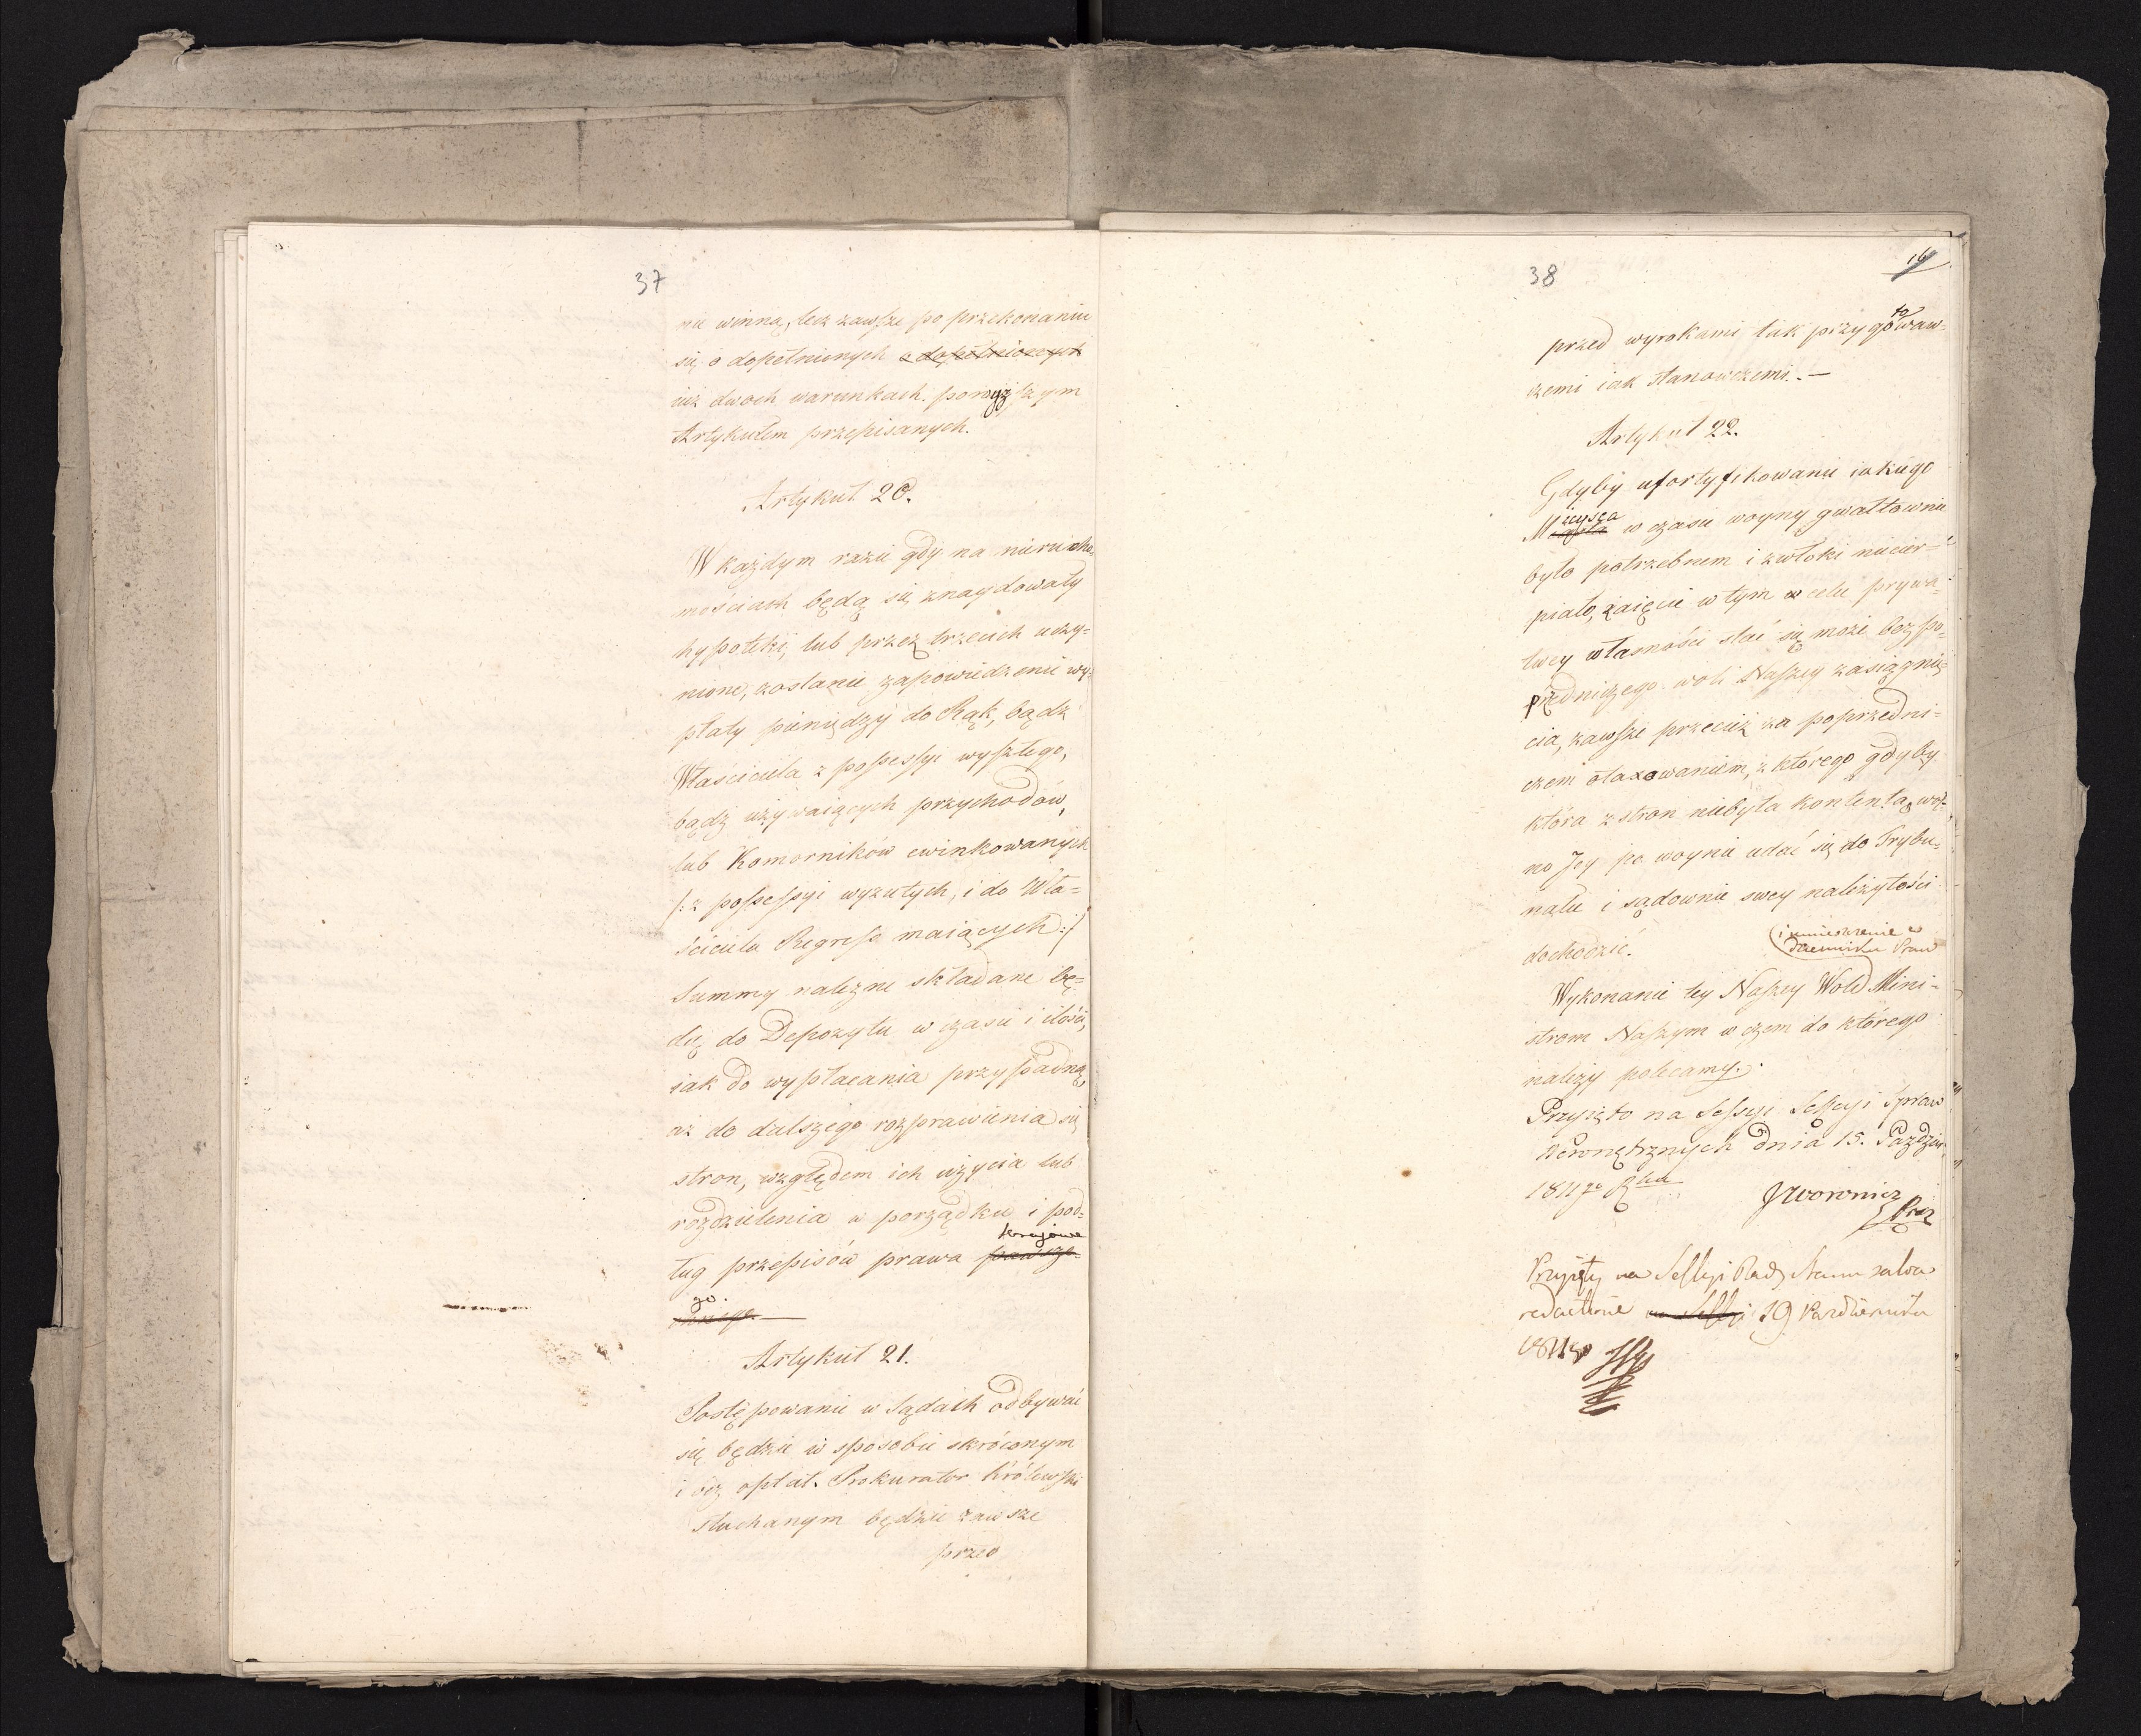 37
nie winna, lecz zawsze po przekonaniu
się o dopełnionych o dopełnionych
już dwoch warunkach powyższym
Artykułem przepisanych.
Artykuł 20.
W każdym razie gdy na nierucho-
mościach będą się znaydowały
hypoteki, lub przez trzecich uczy-
nione, zostanie zapowiedzenie wy-
płaty pieniędzy do Rąk, bądź
Właściciela z possessyi wyszłego,
bądź używaiących przychodów,
lub Komorników ewinkowanych
/: z possessyi wyzutych, i do Wła-
ściciela Regress maiących :/
Summy należne składane bę-
dą do Depozytu w czasie i ilości,
iak do wypłacania przypadną,
aż do dalszego rozprawienia się
stron, względem ich użycia lub
rozdzielenia w porządku i pod-
krajowe
ług przepisów prawa powsze-
go.
Artykuł 21.
Postępowanie w Sądach odbywać
się będzie w sposobie skróconym
i bez opłat. Prokurator Królewski
słuchanym będzie zawsze
przed
38
przed wyrokami tak przygo to waw-
czemi iak stanowczemi. —
Artykuł 22.
Gdyby ufortyfikowanie iakiego
Mieysca w czasie woyny gwałtownie
było potrzebnem i zwłoki niecier-
piało, zaięcie w tym w celu prywa-
tney własności stać się może bez po-
przedniczego woli Naszey zasiągnię-
cia, zawsze przecież za poprzedni-
czem otaxowaniem, z którego gdyby
która z stron niebyła kontenta, wol-
no Jey po woynie udać się do Trybu-
nału i sądownie swey należytości
dochodzić.
(i umieszczenie w
Dzienniku Praw
Wykonanie tey Naszey Woli Mini-
strom Naszym w czem do którego
należy polecamy.
Przyięto na Sessyi Sekcyi Spraw
Wewnętrznych Dnia 15. Paździer.
1811go Roku
JWoronicz
Prez
Przyięty na Sessyi Rady Stanu salva
redactione na Sessyi 19 Października
1811go